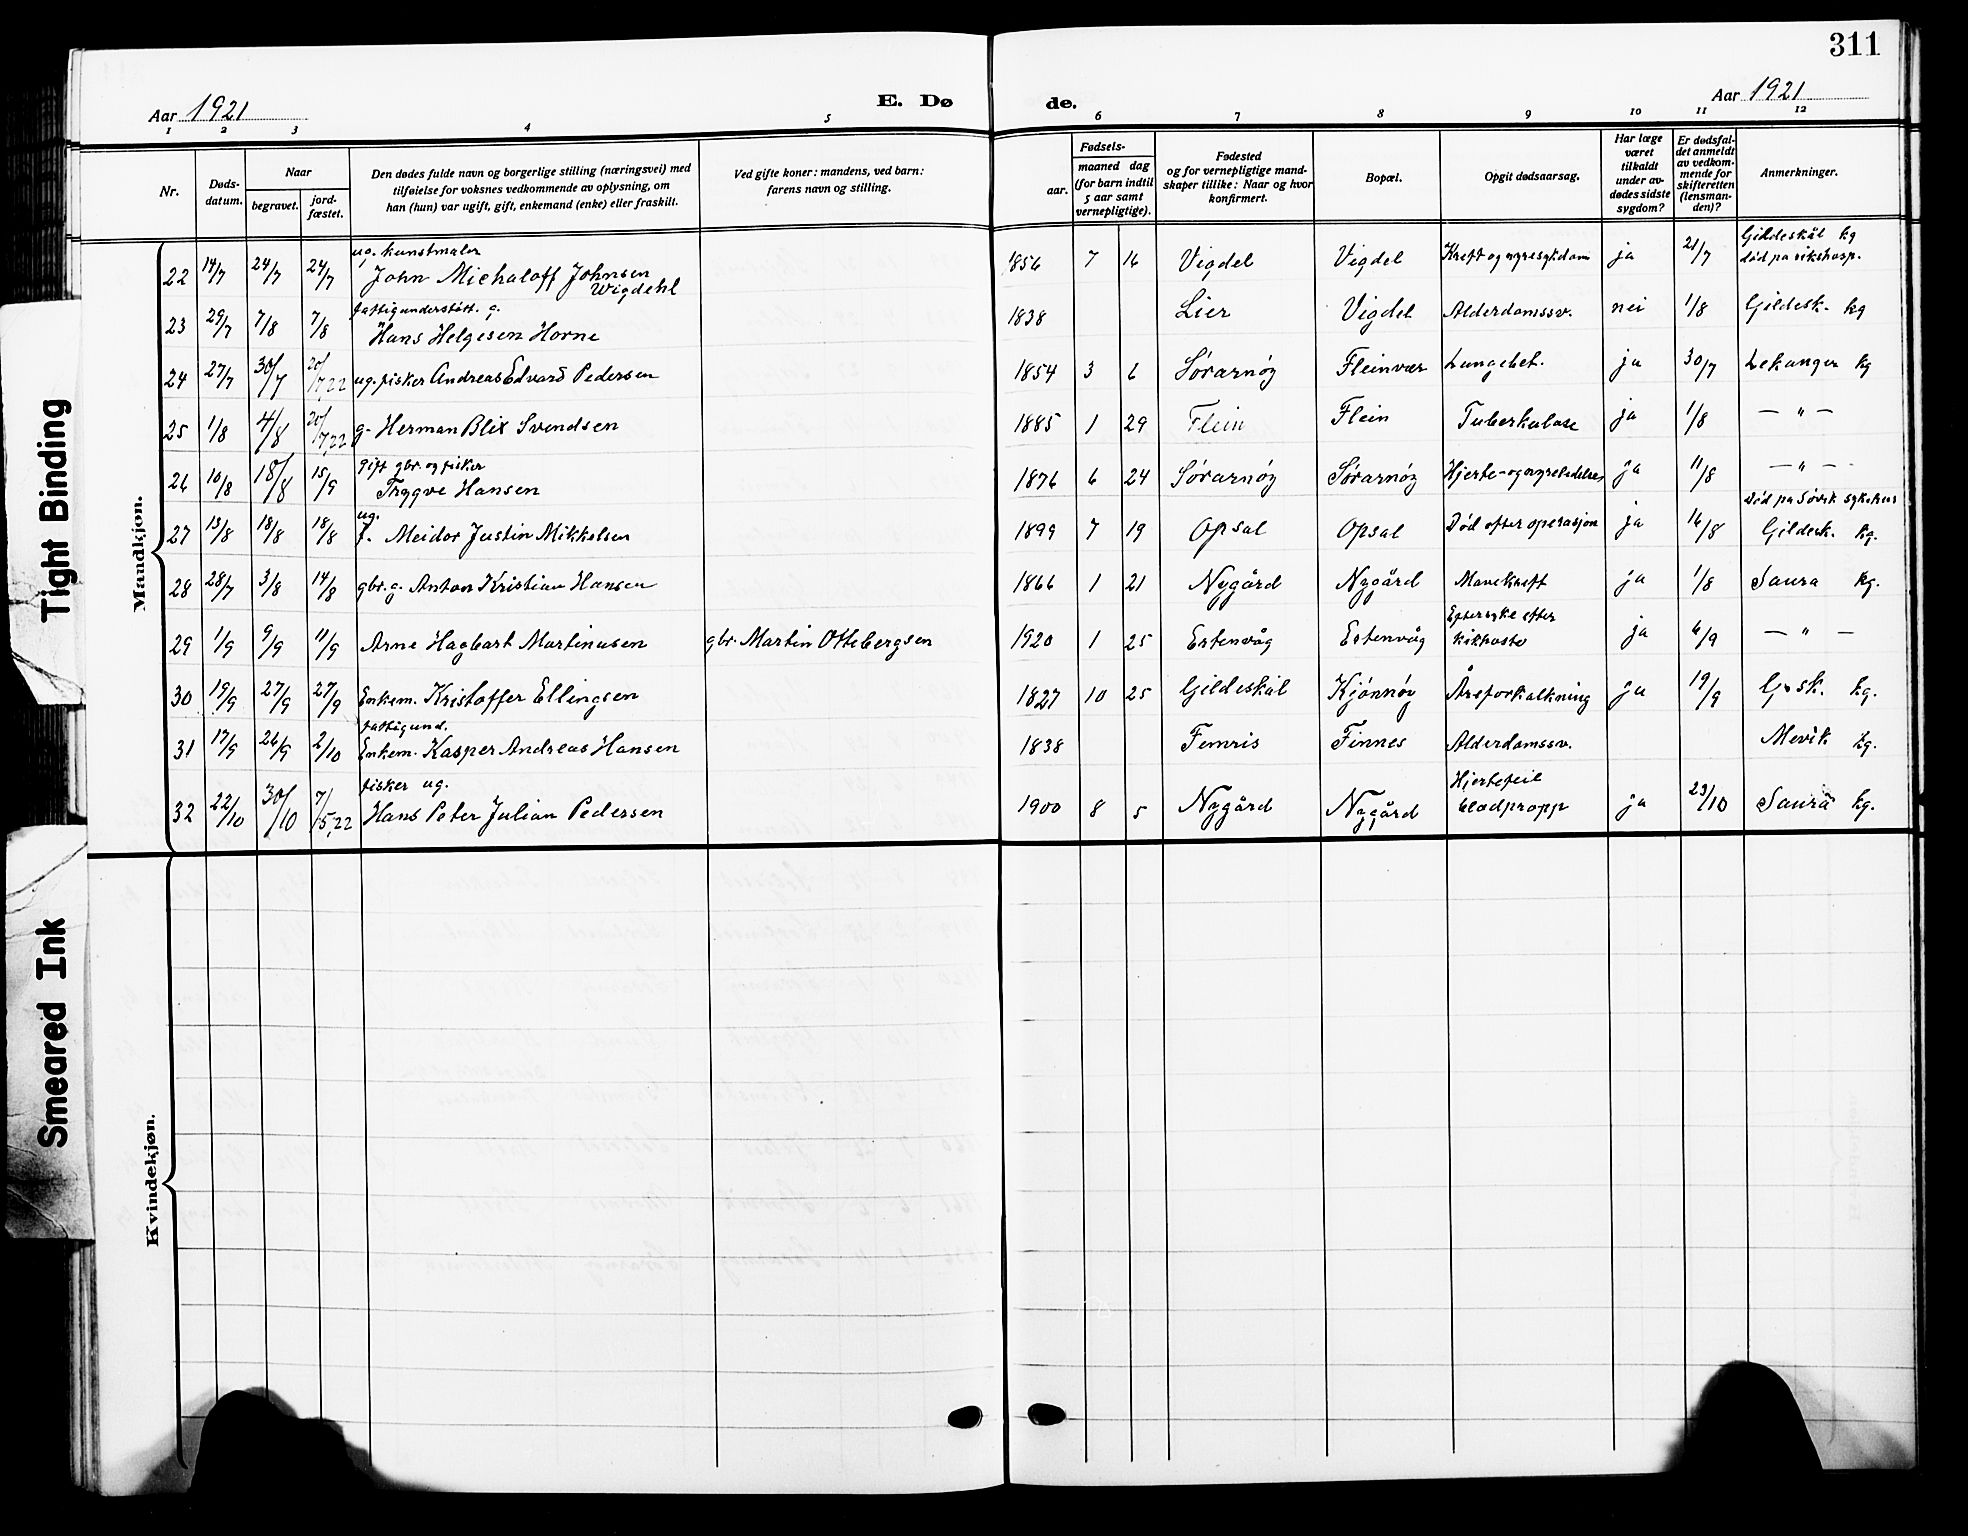 311
Aar 1921
E. Dø
de.
Aar 1921
1 2 3 4 5 6 7 8 9 10 11 12
Nr.
Døds-
datum.
Naar
begravet.
jord-
fæstet.
Den dødes fulde navn og borgerlige stilling (næringsvei) med
tilføielse for voksnes vedkommende av oplysning, om
han (hun) var ugift, gift, enkemand (enke) eller fraskilt.
Ved gifte koner: mandens, ved barn:
farens navn og stilling.
Fødsels-
aar.
maaned dag
(for barn indtil
5 aar samt
vernepligtige).
Fødested
og for vernepligtige mand-
skaper tillike: Naar og hvor
konfirmert.
Bopæl.
Opgit dødsaarsag.
Har læge
været
tilkaldt
under av-
dødes sidste
sygdom?
Er dødsfal-
det anmeldt
av vedkom-
mende for
skifteretten
(lensman-
den)?
Anmerkninger.
Mandkjøn.
ug. kunstmaler
22 14/7 24/7 24/7 John Michaloff Johnsen Wigdehl 1856 7 16 Vigdel Vigdel Kreft og nyresykdom ja 21/7 Gildeskål kg
død på rikshosp.
fattigunderstøtt. g.
23 29/7 7/8 7/8 Hans Helgesen Horne 1838 Lier Vigdel Alderdomssv. nei 1/8 Gildesk. kg
24 27/7 30/7 20/7,22 ug. fisker Andreas Edvard Pedersen 1854 3 6 Sørarnøy Fleinvær Lungebet. ja 30/7 Lekanger kg
25 1/8 4/8 20/7,22 g. Herman Blix Svendsen 1885 1 29 Flein Flein Tuberkulose ja 1/8 — " —
gift gbr. og fisker
26 10/8 18/8 15/9 Trygve Hansen 1876 6 24 Sørarnøy Sørarnøy Hjerte- og nyrelidelse ja 11/8 — " —
ug. Død på Søvik sykehus
27 13/8 18/8 18/8 f. Meidor Justin Mikkelsen 1899 7 19 Opsal Opsal Død efter operasjon ja 16/8 Gildesk. kg.
28 28/7 3/8 14/8 gbr. g. Anton Kristian Hansen 1866 1 21 Nygård Nygård Mavekreft ja 1/8 Saura kg.
29 1/9 9/9 11/9 Arne Hagbart Martinusen gbr. Martin Ottebergsen 1920 1 25 Estenvåg Estenvåg Eftersyke efter
kikhoste ja 6/9 — " —
30 19/9 27/9 27/9 Enkem. Kristoffer Ellingsen 1827 10 25 Gildeskål Kjønnøy Åreforkalkning ja 19/9 G.sk. kg.
fattigund.
31 17/9 26/9 2/10 Enkem. Kasper Andreas Hansen 1838 Femris Finnes Alderdomssv. Mevik kg.
fisker ug.
32 22/10 30/10 7/5,22 Hans Peter Julian Pedersen 1900 8 5 Nygård Nygård Hjertefeil
blodpropp ja 23/10 Saura kg.
Kvindekjøn.
Tight Binding
Smeared Ink